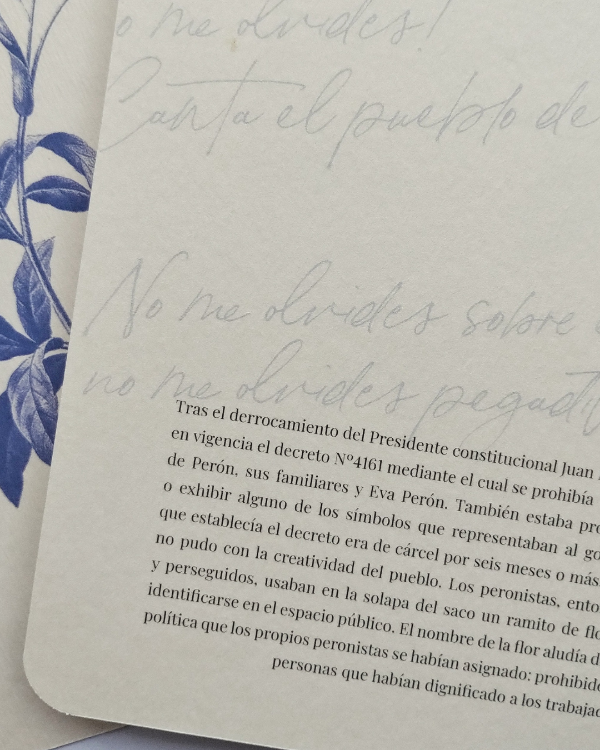 o me olvides!
Canta el pueblo de
No me olvides sobre
no me olvides
Tras el derrocamiento del Presidente constitucional Juan
en vigencia el decreto Nº4161 mediante el cual se prohibía
de Perón, sus familiares y Eva Perón. También estaba
o exhibir alguno de los símbolos que representaban al
que establecía el decreto era de cárcel por seis meses o más
no pudo con la creatividad del pueblo. Los peronistas,
y perseguidos, usaban en la solapa del saco un ramito de
identificarse en el espacio público. El nombre de la flor aludía
política que los propios peronistas se habían asignado:
personas que habían dignificado a los